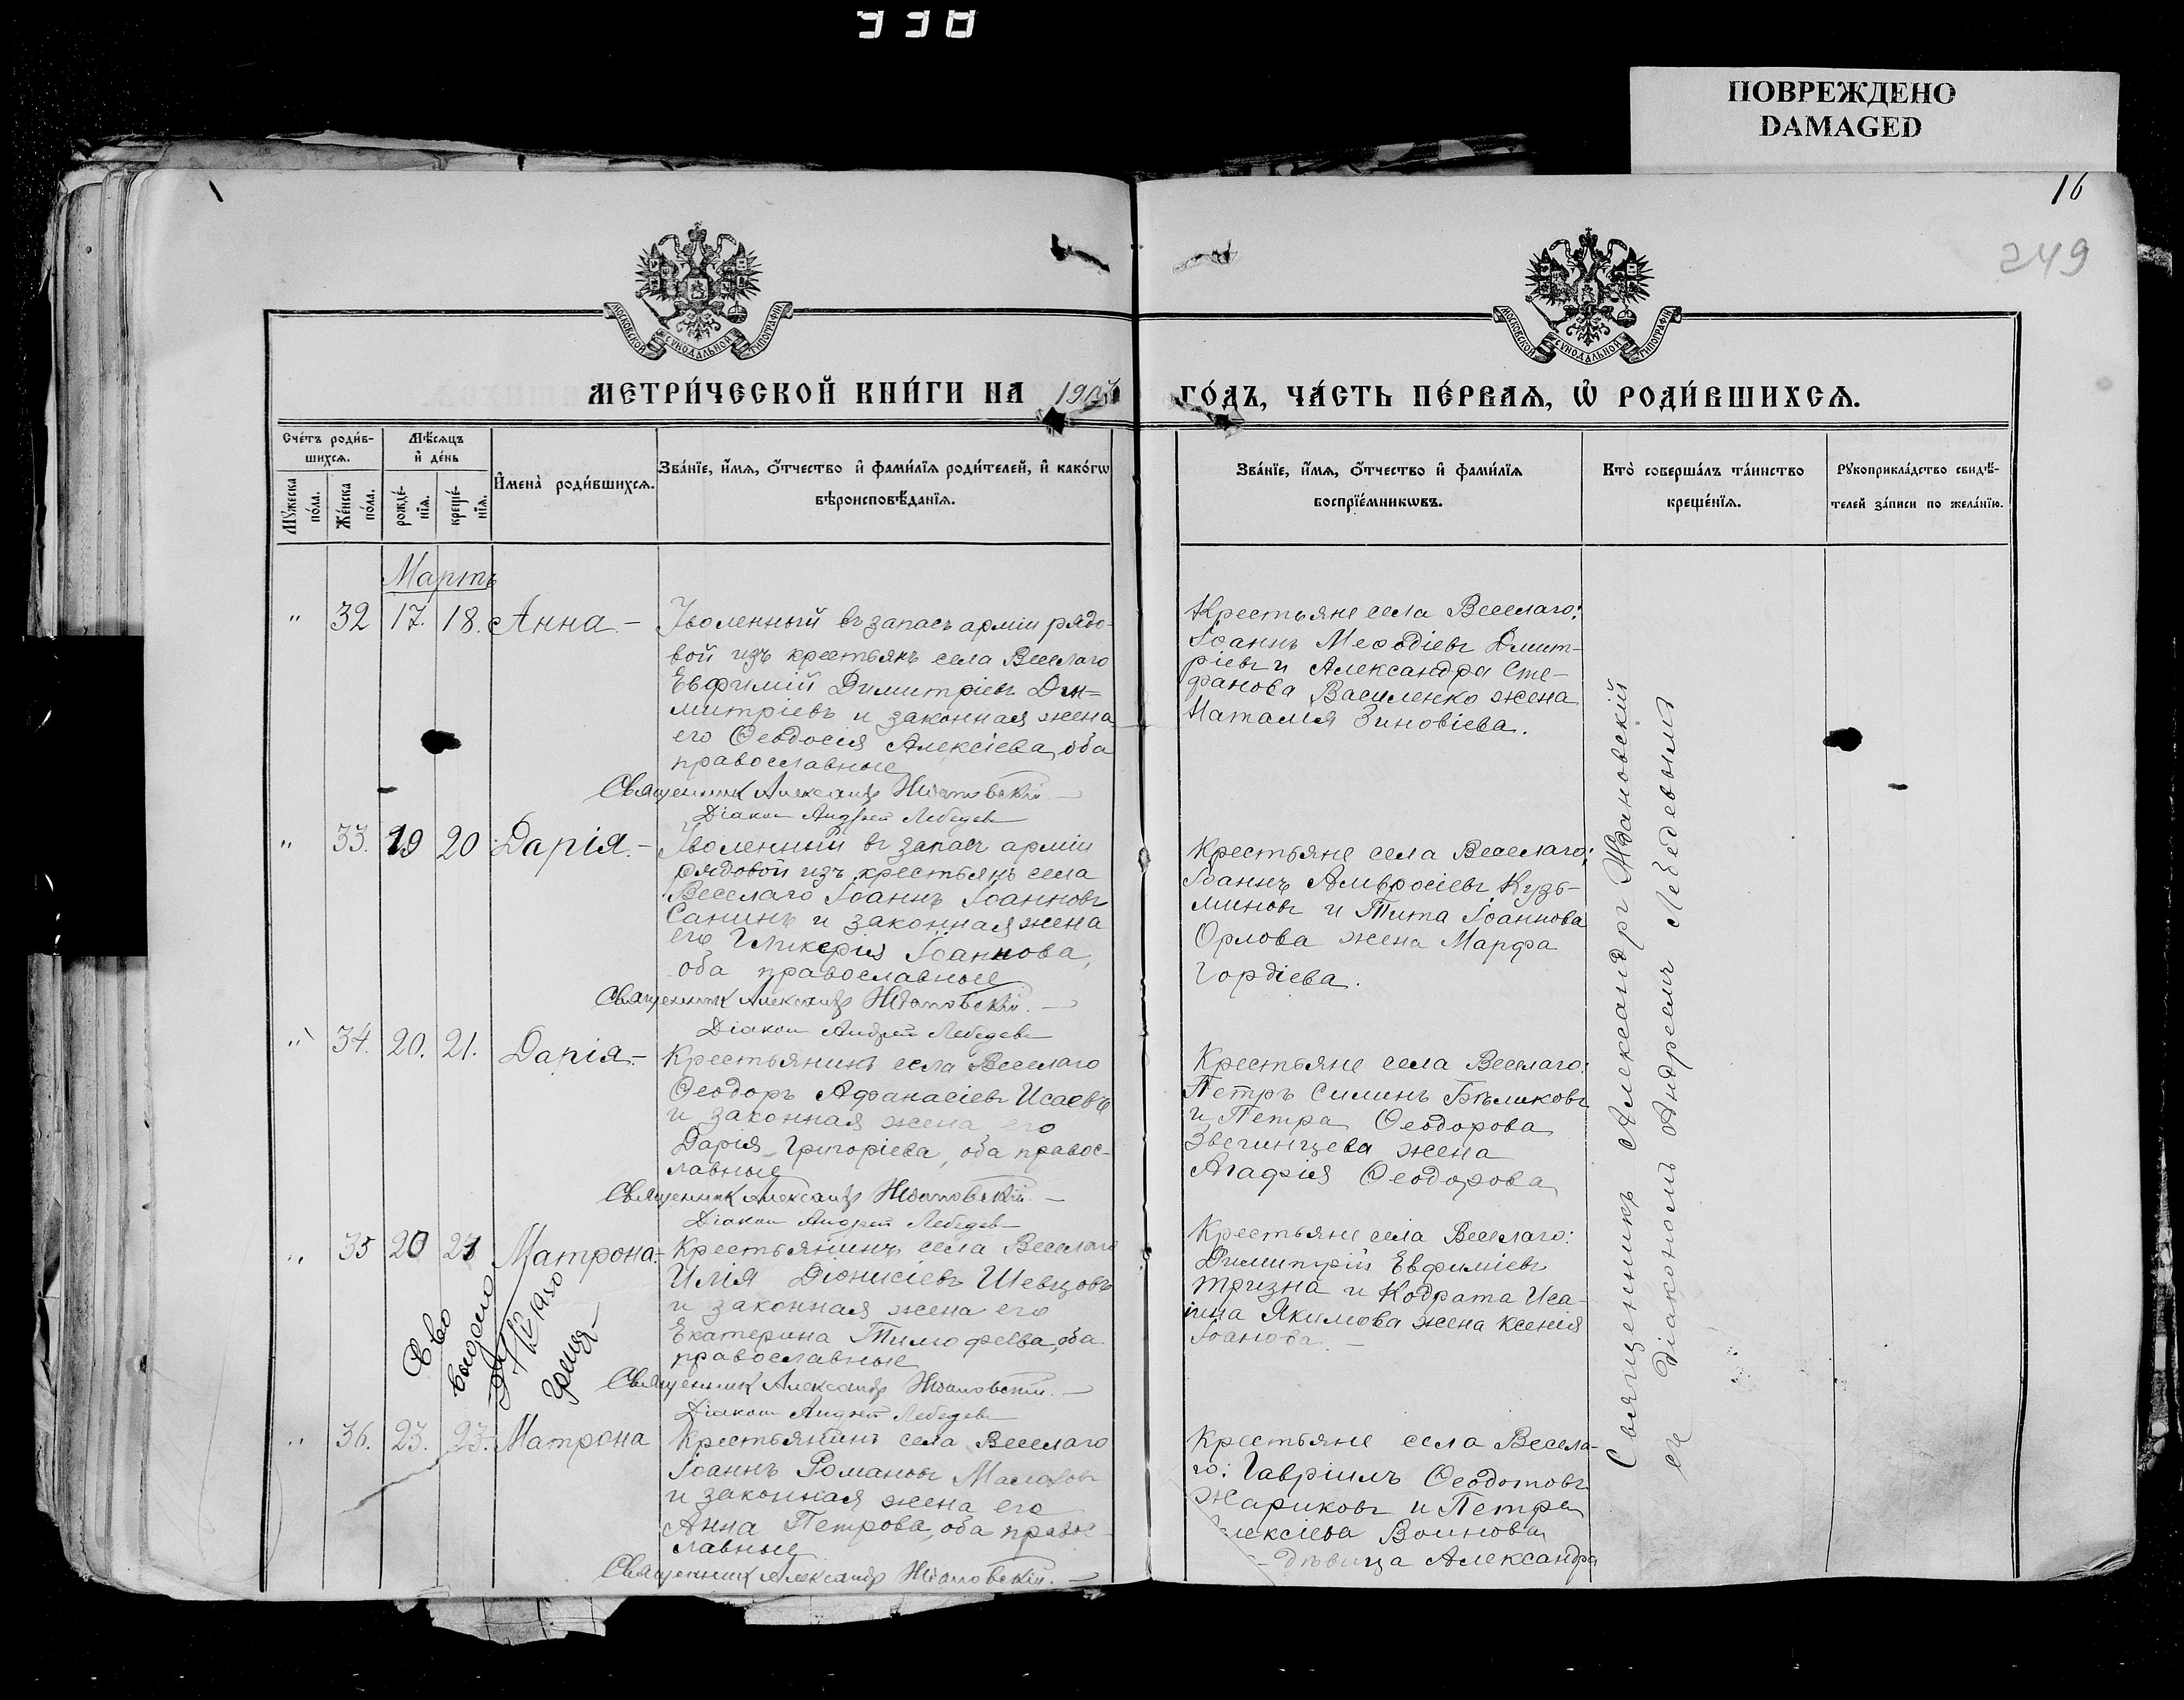 338
ПОВРЕЖДЕНО
DAMAGED
16
249
МОСКОВСКОЙ СѴНОДАЛЬНОЙ ТИПОГРАФІИ
МОСКОВСКОЙ СѴНОДАЛЬНОЙ ТИПОГРАФІИ
МЕТРИ́ЧЕСКОЙ КНИ́ГИ НА 190
ГО́ДЪ, ЧА́СТЬ ПЕ́РВАѦ, Ѽ РОДИ́ВШИХСѦ.
Сче́тъ роди́в-
шихсѧ.
Мѣ́сѧцъ
и҆ де́нь
И҆мена̀ роди́вшихсѧ.
Зва́нїе, и҆́мѧ, ѻ҆́тчество и҆ фами́лїѧ роди́телей, и҆ како́гѡ
вѣроисповѣ́данїѧ.
Зва́нїе, и҆́мѧ, ѻ҆́тчество и҆ фами́лїѧ
воспрїе́мникѡвъ.
Кто̀ соверша́лъ та́инство
креще́нїѧ.
Рꙋкоприкла́дство свидѣ́-
телей за́писи по жела́нїю.
Мꙋ́жеска
по́ла.
Же́нска
по́ла.
рожде́-
нїѧ.
креще́-
нїѧ.
Мартъ
" 32 17. 18. Анна. – Уволенный въ запасъ арміи рядо-
вой изъ крестьянъ села Веселаго
Евфимій Димитріевъ Ди-
митріевъ и законная жена
его Ѳеодосія Алексіева, оба
православные
Священник Александр Ждановскій. –
Діакон Андрей Лебедев
Крестьяне села Веселаго:
Іоаннъ Меѳодіевъ Дмит-
ріевъ и Александра Сте-
фанова Василенко жена
Наталія Зиновіева.
" 33. 19 20 Дарія. – Уволенный въ запас арміи
рядовой изъ крестьянъ села
Веселаго Іоаннъ Іоанновъ
Санинъ и законная жена
его Гликерія Іоаннова,
оба православные
Священник Александр Ждановскій. –
Діакон Андрей Лебедев
Крестьяне села Веселаго:
Іоаннъ Амвросіевъ Кузь-
миновъ и Тита Іоаннова
Орлова жена Марфа
Гордіева.
" 34. 20. 21. Дарія – Крестьянинъ села Веселаго
Ѳеодоръ Аѳанасіевъ Исаевъ
и законная жена его
Дарія Григоріева, оба правос-
лавные
Священник Александр Ждановскій. –
Діакон Андрей Лебедев
Крестьяне села Веселаго:
Петръ Силинъ Бѣликовъ
и Петра Ѳеодорова
Звегинцева жена
Агафія Ѳеодорова
" 35 20 21 Матрона – Крестьянинъ села Веселаго
Илія Діонисіевъ Шевцовъ
и законная жена его
Екатерина Тимоѳеева, оба
православные
Священник Александр Ждановскій. –
Діакон Андрей Лебедев
Крестьяне села Веселаго:
Димитрій Евфиміевъ
Тризна и Кодрата Иса-
Якимова жена Ксенія
Іоанова. –
Св-во
выдано
1950
" 36. 23. 23. Матрона Крестьянинъ села Веселаго
Іоаннъ Романовъ
и законная жена его
Анна Петрова, оба правос-
лавные
Священник Александр Ждановскій. –
Крестьяне села Весела-
го: Гавріилъ Ѳеодотовъ
Жариковъ и Петра
Воинова
дѣвица Александра
Священникъ Александръ Ждановскій
съ Діакономъ Андреемъ Лебедевымъ